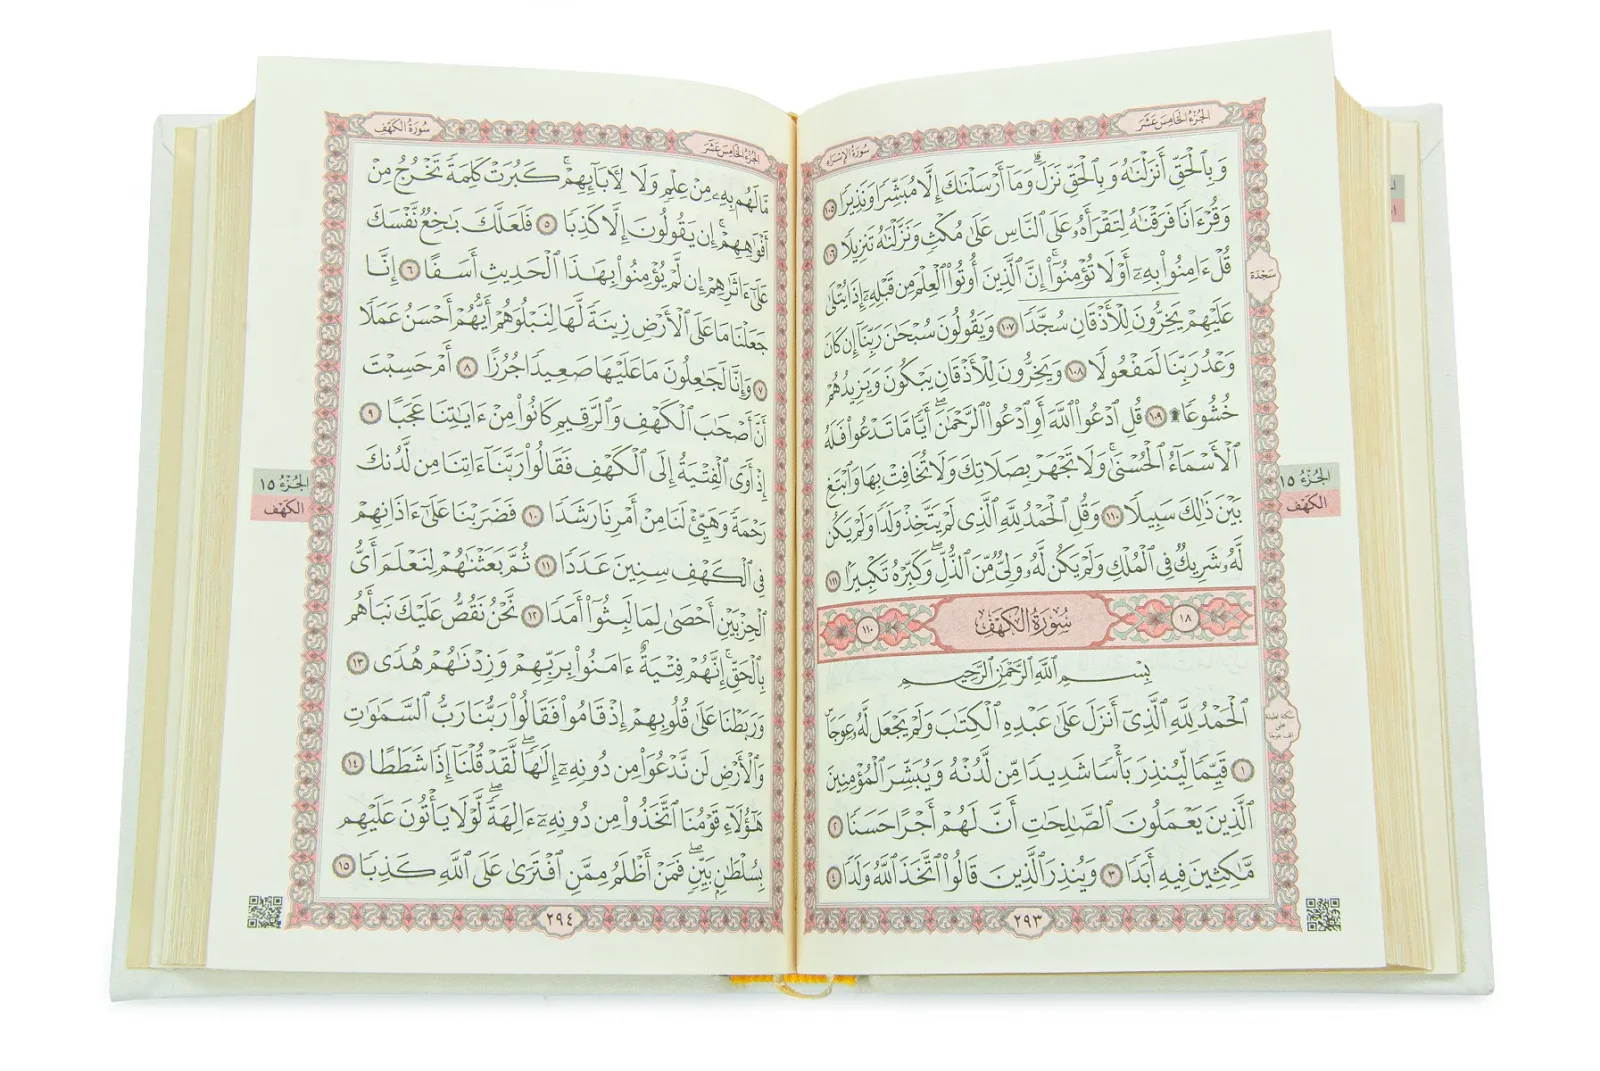 سُورَةُ الإِسْرَاءِ
الجُزْءُ الخَامِسَ عَشَرَ
وَبِٱلْحَقِّ أَنزَلْنَٰهُ وَبِٱلْحَقِّ نَزَلَۗ وَمَآ أَرْسَلْنَٰكَ إِلَّا مُبَشِّرًا وَنَذِيرًا ١٠٥
وَقُرْءَانًا فَرَقْنَٰهُ لِتَقْرَأَهُۥ عَلَى ٱلنَّاسِ عَلَىٰ مُكْثٍ وَنَزَّلْنَٰهُ تَنزِيلًا ١٠٦
قُلْ ءَامِنُوا۟ بِهِۦٓ أَوْ لَا تُؤْمِنُوٓا۟ۚ إِنَّ ٱلَّذِينَ أُوتُوا۟ ٱلْعِلْمَ مِن قَبْلِهِۦٓ إِذَا يُتْلَىٰ
عَلَيْهِمْ يَخِرُّونَ لِلْأَذْقَانِ سُجَّدًا ١٠٧ وَيَقُولُونَ سُبْحَٰنَ رَبِّنَآ إِن كَانَ
وَعْدُ رَبِّنَا لَمَفْعُولًا ١٠٨ وَيَخِرُّونَ لِلْأَذْقَانِ يَبْكُونَ وَيَزِيدُهُمْ
خُشُوعًا ۩ ١٠٩ قُلِ ٱدْعُوا۟ ٱللَّهَ أَوِ ٱدْعُوا۟ ٱلرَّحْمَٰنَۖ أَيًّا مَّا تَدْعُوا۟ فَلَهُ
ٱلْأَسْمَآءُ ٱلْحُسْنَىٰۚ وَلَا تَجْهَرْ بِصَلَاتِكَ وَلَا تُخَافِتْ بِهَا وَٱبْتَغِ
بَيْنَ ذَٰلِكَ سَبِيلًا ١١٠ وَقُلِ ٱلْحَمْدُ لِلَّهِ ٱلَّذِى لَمْ يَتَّخِذْ وَلَدًا وَلَمْ يَكُن
لَّهُۥ شَرِيكٌ فِى ٱلْمُلْكِ وَلَمْ يَكُن لَّهُۥ وَلِىٌّ مِّنَ ٱلذُّلِّۖ وَكَبِّرْهُ تَكْبِيرًۢا ١١١
١٨ سُورَةُ الكَهْفِ ١١٠
بِسْمِ ٱللَّهِ ٱلرَّحْمَٰنِ ٱلرَّحِيمِ
ٱلْحَمْدُ لِلَّهِ ٱلَّذِىٓ أَنزَلَ عَلَىٰ عَبْدِهِ ٱلْكِتَٰبَ وَلَمْ يَجْعَل لَّهُۥ عِوَجَاۜ
١ قَيِّمًا لِّيُنذِرَ بَأْسًا شَدِيدًا مِّن لَّدُنْهُ وَيُبَشِّرَ ٱلْمُؤْمِنِينَ
ٱلَّذِينَ يَعْمَلُونَ ٱلصَّٰلِحَٰتِ أَنَّ لَهُمْ أَجْرًا حَسَنًا ٢
مَّٰكِثِينَ فِيهِ أَبَدًا ٣ وَيُنذِرَ ٱلَّذِينَ قَالُوا۟ ٱتَّخَذَ ٱللَّهُ وَلَدًا ٤
٢٩٣
سَجْدَة
الجُزْءُ ١٥
الكَهْف
سُورَةُ الكَهْفِ
الجُزْءُ الخَامِسَ عَشَرَ
مَّا لَهُم بِهِۦ مِنْ عِلْمٍ وَلَا لِءَابَآئِهِمْۚ كَبُرَتْ كَلِمَةً تَخْرُجُ مِنْ
أَفْوَٰهِهِمْۚ إِن يَقُولُونَ إِلَّا كَذِبًا ٥ فَلَعَلَّكَ بَٰخِعٌ نَّفْسَكَ
عَلَىٰٓ ءَاثَٰرِهِمْ إِن لَّمْ يُؤْمِنُوا۟ بِهَٰذَا ٱلْحَدِيثِ أَسَفًا ٦ إِنَّا
جَعَلْنَا مَا عَلَى ٱلْأَرْضِ زِينَةً لَّهَا لِنَبْلُوَهُمْ أَيُّهُمْ أَحْسَنُ عَمَلًا
٧ وَإِنَّا لَجَٰعِلُونَ مَا عَلَيْهَا صَعِيدًا جُرُزًا ٨ أَمْ حَسِبْتَ
أَنَّ أَصْحَٰبَ ٱلْكَهْفِ وَٱلرَّقِيمِ كَانُوا۟ مِنْ ءَايَٰتِنَا عَجَبًا ٩
إِذْ أَوَى ٱلْفِتْيَةُ إِلَى ٱلْكَهْفِ فَقَالُوا۟ رَبَّنَآ ءَاتِنَا مِن لَّدُنكَ
رَحْمَةً وَهَيِّئْ لَنَا مِنْ أَمْرِنَا رَشَدًا ١٠ فَضَرَبْنَا عَلَىٰٓ ءَاذَانِهِمْ
فِى ٱلْكَهْفِ سِنِينَ عَدَدًا ١١ ثُمَّ بَعَثْنَٰهُمْ لِنَعْلَمَ أَىُّ
ٱلْحِزْبَيْنِ أَحْصَىٰ لِمَا لَبِثُوٓا۟ أَمَدًا ١٢ نَّحْنُ نَقُصُّ عَلَيْكَ نَبَأَهُم
بِٱلْحَقِّۚ إِنَّهُمْ فِتْيَةٌ ءَامَنُوا۟ بِرَبِّهِمْ وَزِدْنَٰهُمْ هُدًى ١٣
وَرَبَطْنَا عَلَىٰ قُلُوبِهِمْ إِذْ قَامُوا۟ فَقَالُوا۟ رَبُّنَا رَبُّ ٱلسَّمَٰوَٰتِ
وَٱلْأَرْضِ لَن نَّدْعُوَا۟ مِن دُونِهِۦٓ إِلَٰهًاۖ لَّقَدْ قُلْنَآ إِذًا شَطَطًا ١٤
هَٰٓؤُلَآءِ قَوْمُنَا ٱتَّخَذُوا۟ مِن دُونِهِۦٓ ءَالِهَةًۖ لَّوْلَا يَأْتُونَ عَلَيْهِم
بِسُلْطَٰنٍۭ بَيِّنٍۖ فَمَنْ أَظْلَمُ مِمَّنِ ٱفْتَرَىٰ عَلَى ٱللَّهِ كَذِبًا ١٥
٢٩٤
الجُزْءُ ١٥
الكَهْف